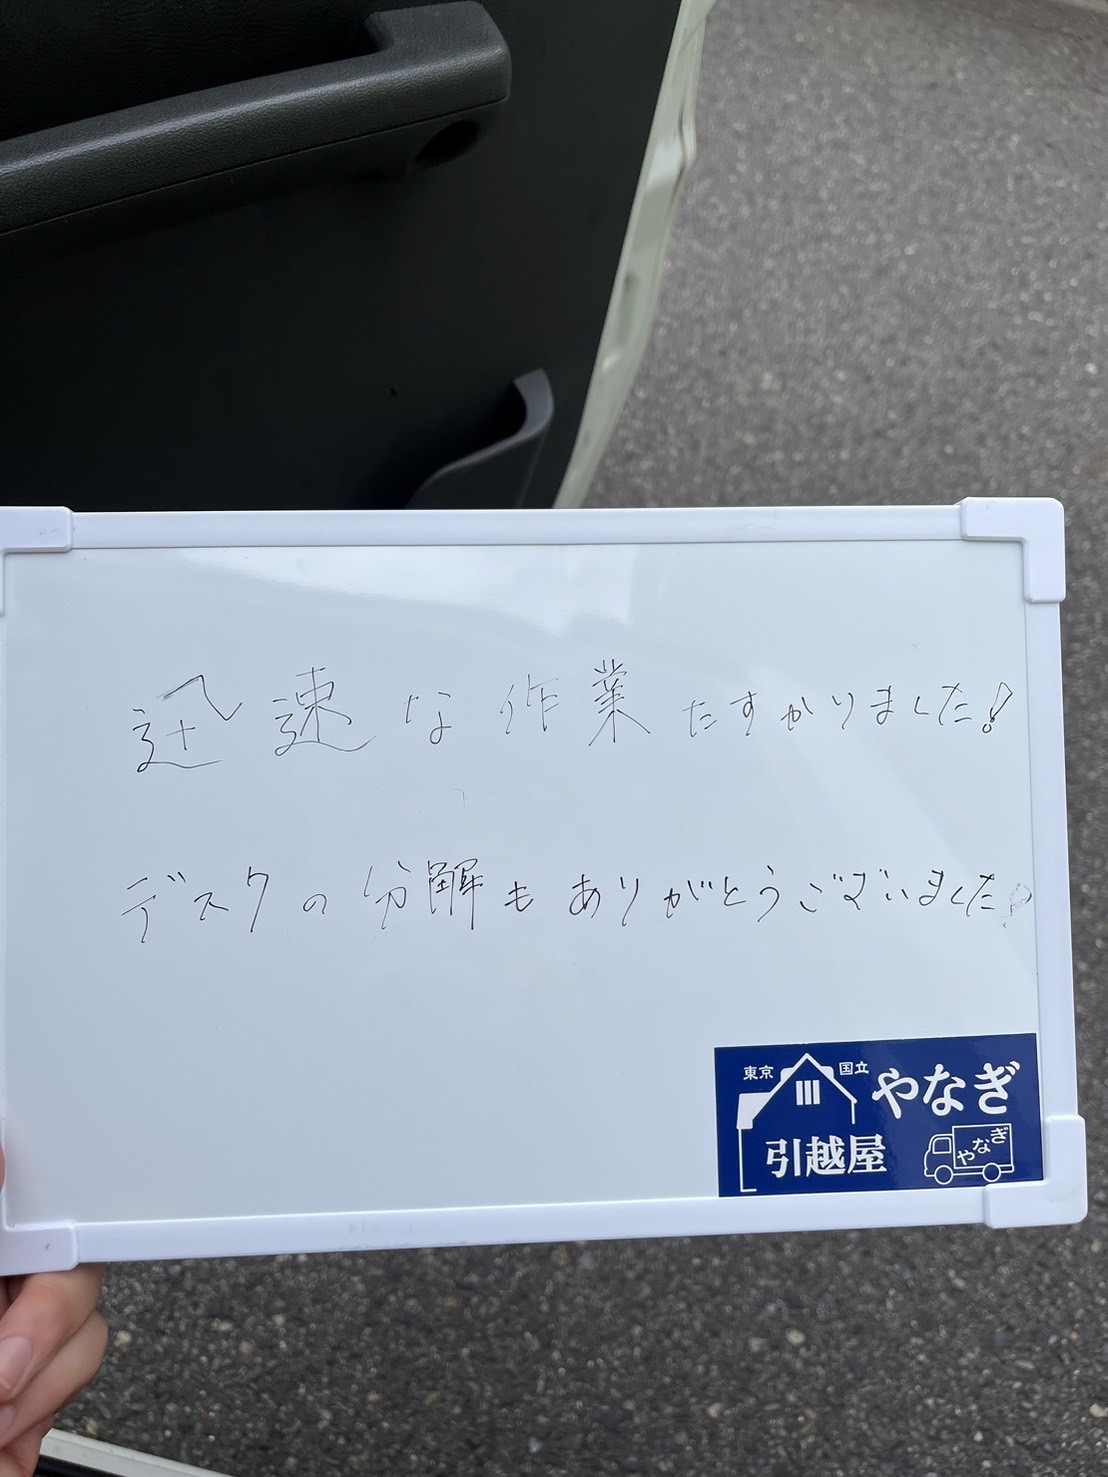 迅速な作業たすかりました!
デスクの分解もありがとうございました
東京 国立 やなぎ
引越屋 やなぎ